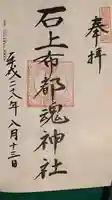 奉拝
石上布都魂神社
平成二八年八月十三日